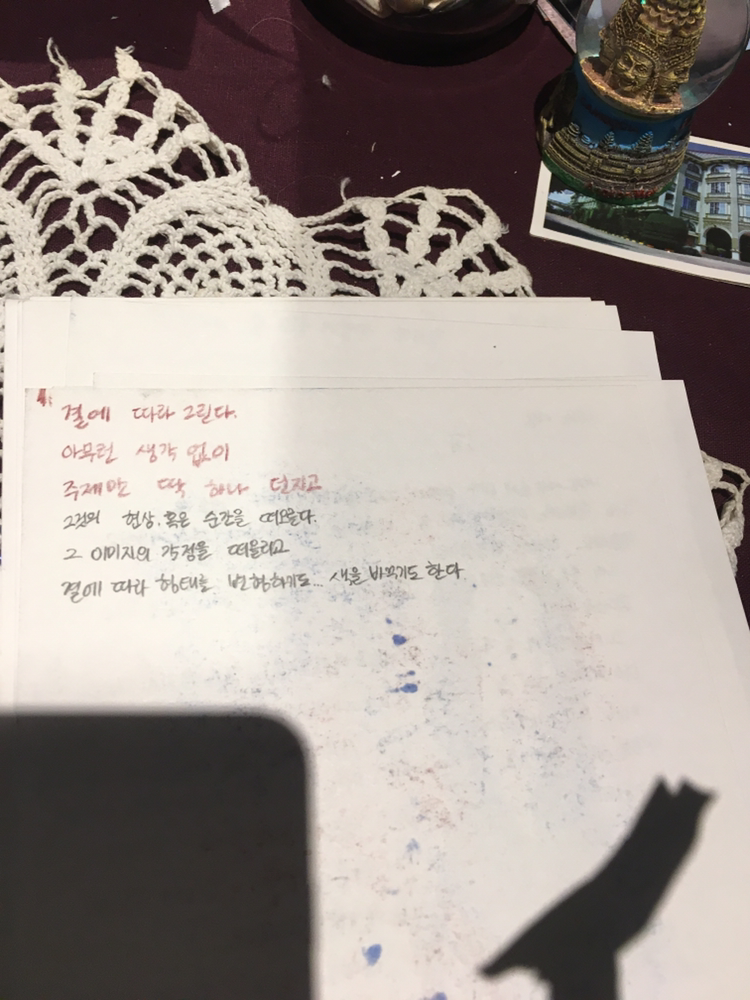 결에 따라 그린다.
아무런 생각 없이
주제만 딱 하나 던지고
그것의 현상, 혹은 순간을 떠올린다.
그 이미지의 감정을 떠올리고
결에 따라 형태를 변형하기도... 색을 바꾸기도 한다